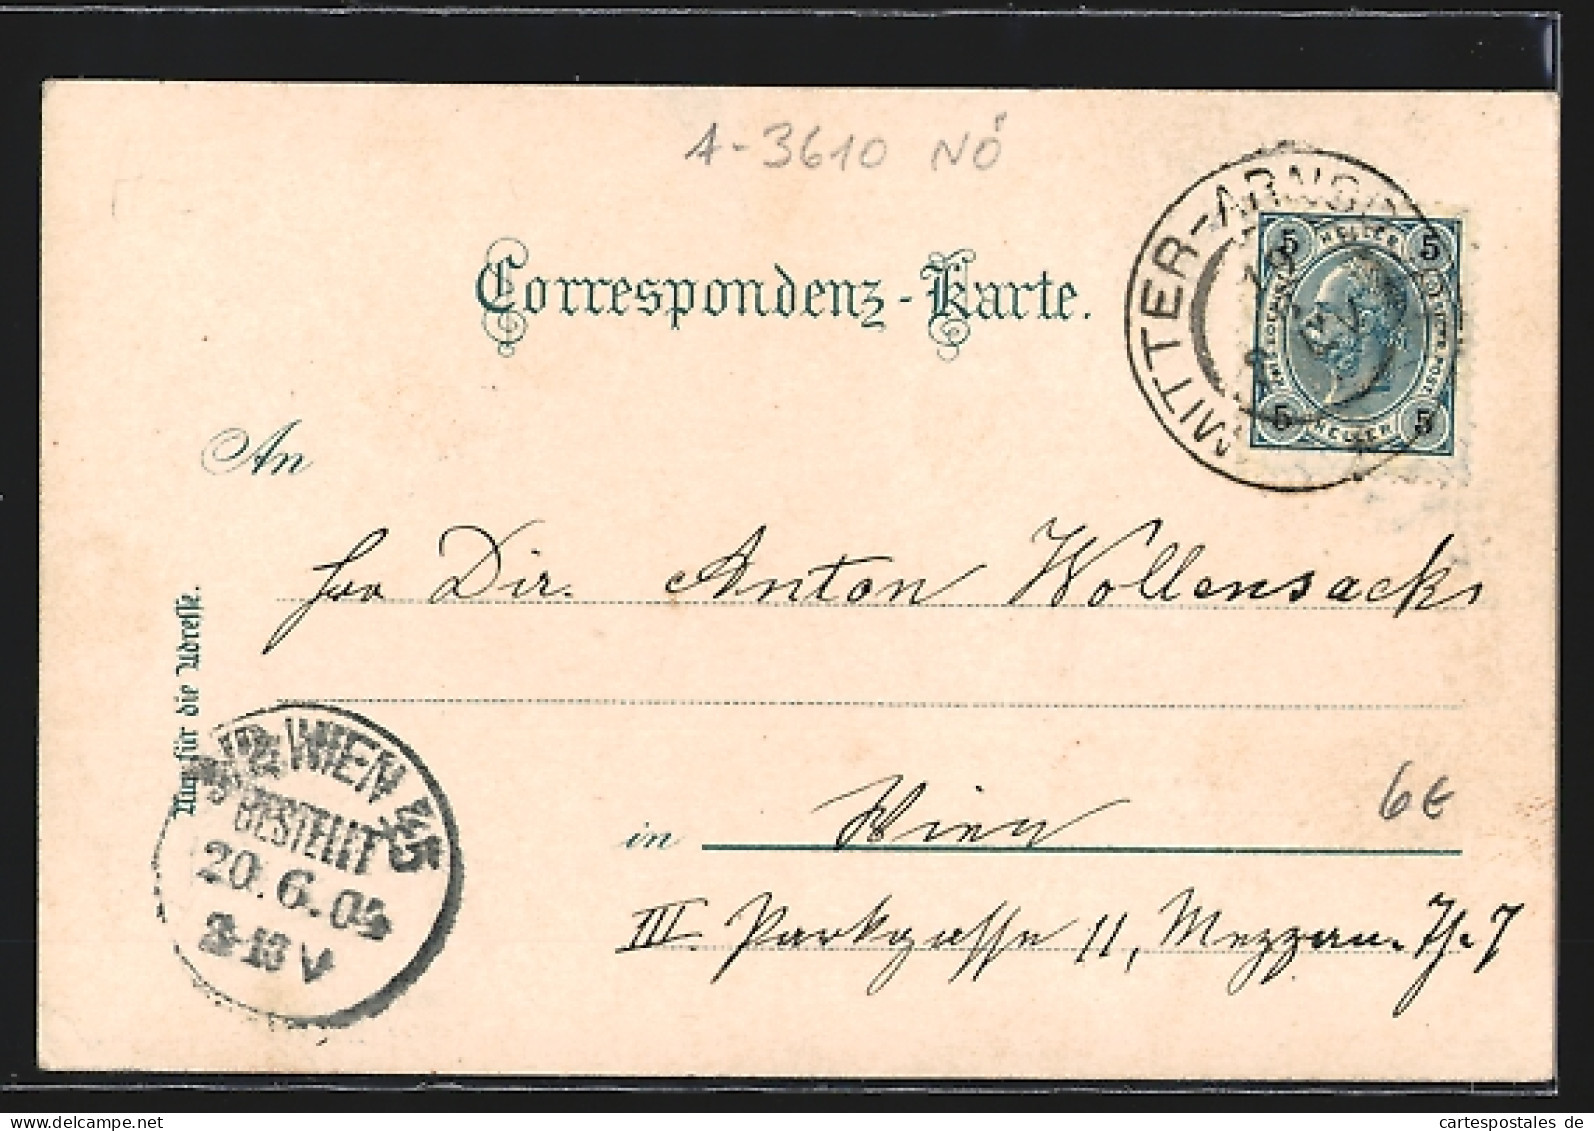 A-3610 NÖ
MITTER-ARNSD
5 HELLER 5
5 HELLER 5
Correspondenz-Karte.
An
Dir. Anton Wollensacks
Nur für die Adresse.
in Wien
6€
III. Parkgasse 11, Mezzan. Th. 7
WIEN 45
BESTELLT
20.6.04
V
cartespostales.de